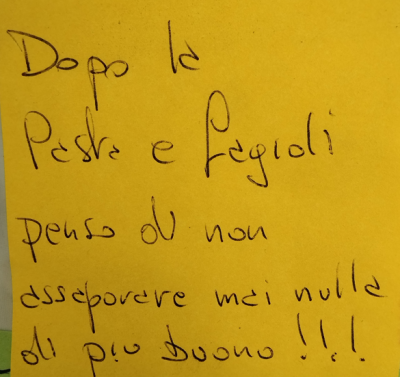 Dopo la
Pasta e fagioli
penso di non
assaporare mai nulla
di più buono !!!